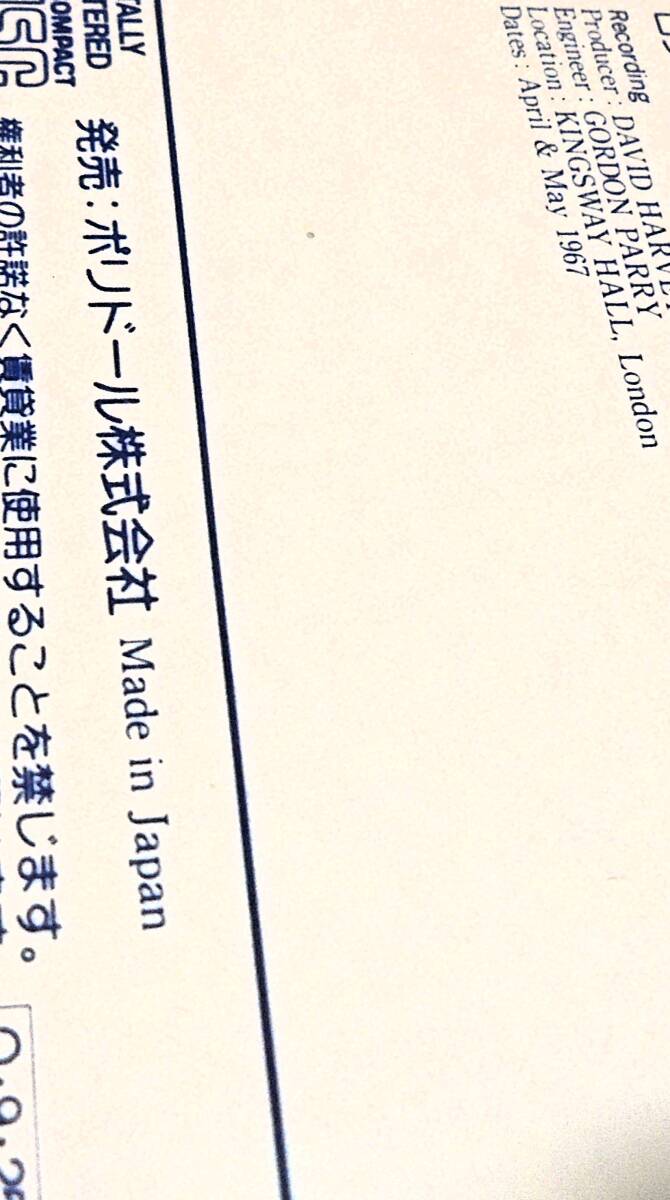 Recording
Producer : DAVID HARVEY
Engineer : GORDON PARRY
Location : KINGSWAY HALL, London
Dates : April & May 1967
発売：ポリドール株式会社 Made in Japan
権利者の許諾なく賃貸業に使用することを禁じます。
TALLY
TERED
OMPACT